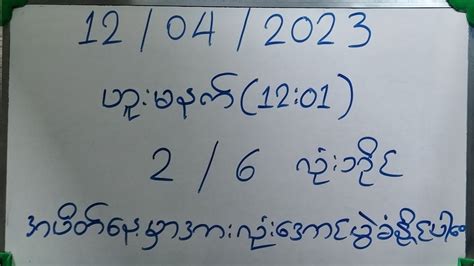 12/04/2023
ဘူးမနက်(12:01)
2/6 လုံးဘိုင်
အဖိတ်နေ့မှာအားလုံးအောင်ပွဲခံနိုင်ပါစေ